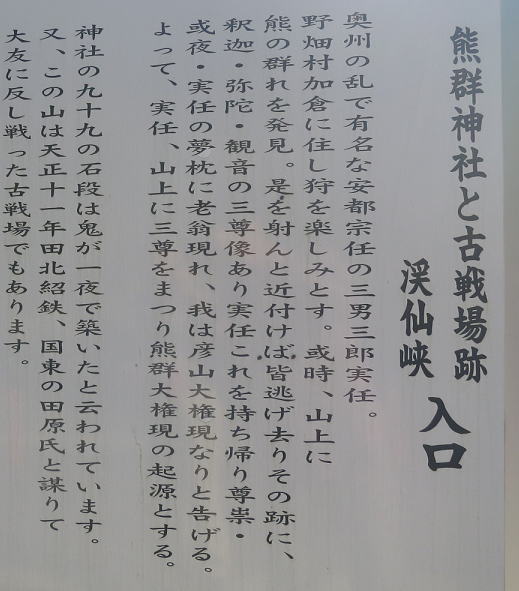 熊群神社と古戦場跡
渓仙峡 入口
奥州の乱で有名な安都宗任の三男三郎実任。
野畑村加倉に住し狩を楽しみとす。或時、山上に
熊の群れを発見。是を射んと近付けば皆逃げ去りその跡に、
釈迦・弥陀・観音の三尊像あり実任これを持ち帰り尊祟・
或夜・実任の夢枕に老翁現れ、我は彦山大権現なりと告げる。
よって、実任、山上に三尊をまつり熊群大権現の起源とする。
神社の九十九の石段は鬼が一夜で築いたと云われています。
又、この山は天正十一年田北紹鉄、国東の田原氏と謀りて
大友に反し戦った古戦場でもあります。